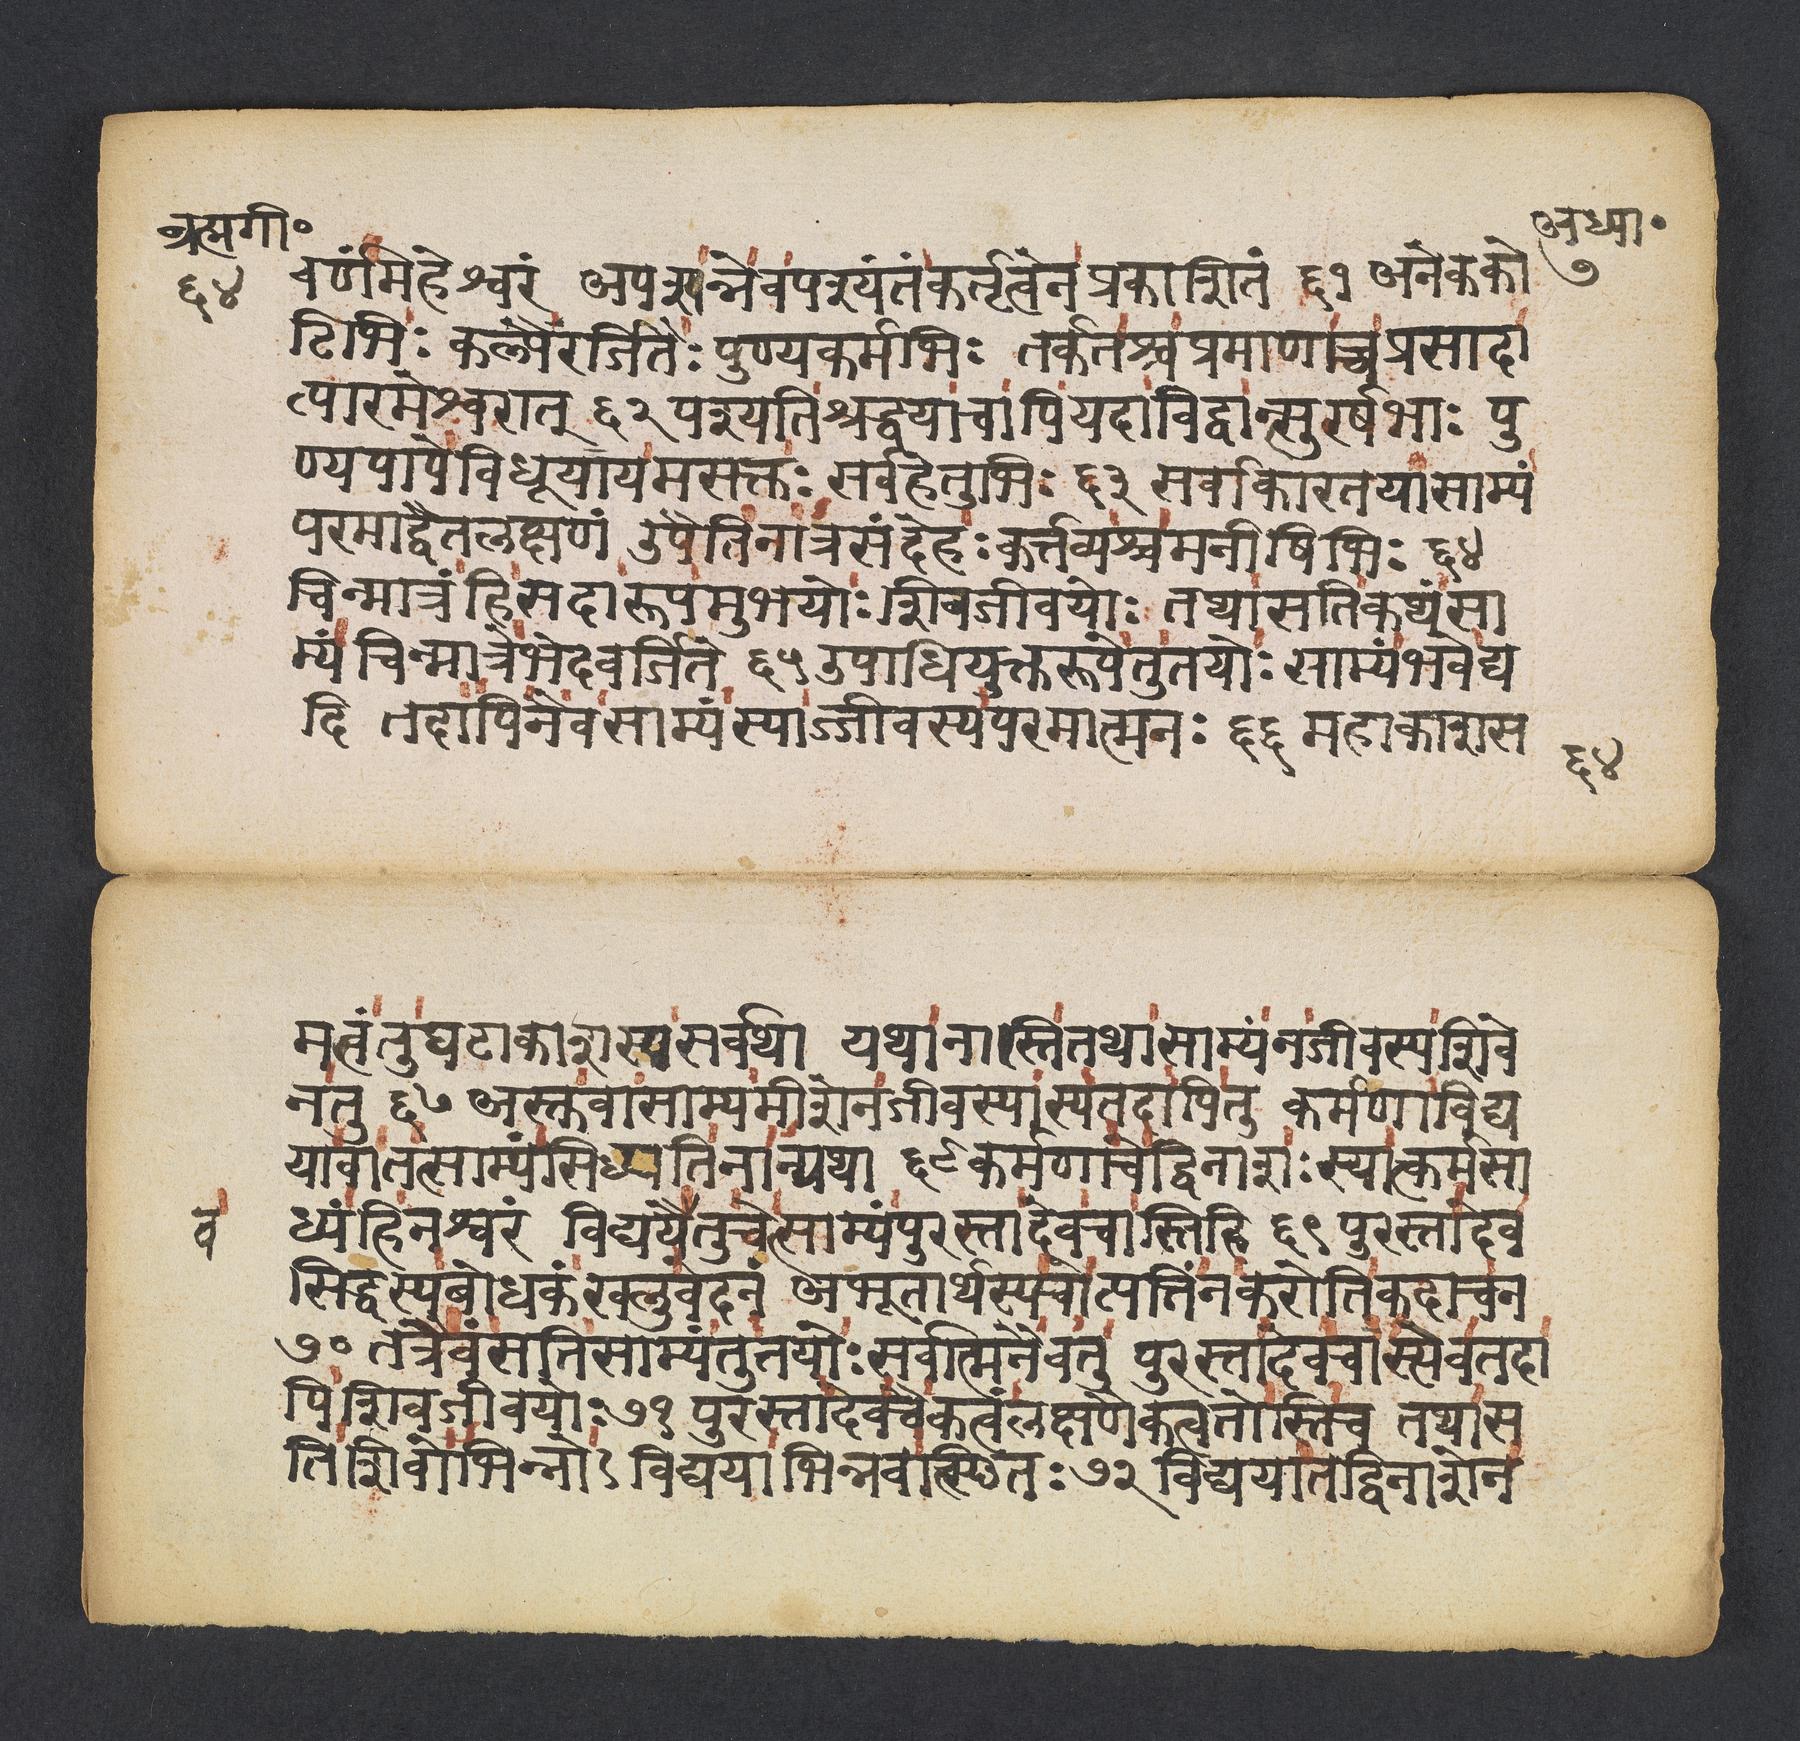 ब्रह्मगी॰
अध्या॰
६४
७
वर्णंमहेश्वरं अपश्यन्नेवपश्यंतंकर्तृत्वेनप्रकाशितं ६१ अनेकको
टिभिः कल्पैरर्जितैः पुण्यकर्मभिः तर्कतश्चप्रमाणाच्चप्रसादा
त्पारमेश्वरात् ६२ पश्यतिश्रद्धयाचापियदाविद्वान्सुरर्षभाः पु
ण्यपापेविधूयायमसक्तः सर्वहेतुभिः ६३ सर्वाकारतयासाम्यं
परमाद्वैतलक्षणं उपैतिनात्रसंदेहः कर्त्तव्यश्चमनीषिभिः ६४
चिन्मात्रंहिसदारूपमुभयोः शिवजीवयोः तथासतिकथंसा
म्यंचिन्मात्रेभेदवर्जिते ६५ उपाधियुक्तरूपेतुतयोः साम्यंभवेद्य
दि तदापिनैवसाम्यंस्याज्जीवस्यपरमात्मनः ६६ महाकाशस
६४
मत्वंतुघटाकाशस्यसर्वथा यथानास्तितथासाम्यंनजीवस्यशिवे
नतु ६७ अस्त्कवासाम्यमीशेनजीवस्यास्यतदापितु कर्मणाविद्य
यावातत्साम्यंसिध्यतिनान्यथा ६८ कर्मणाचेद्विनाशः स्यात्कर्मसा
व
ध्यंहिनश्वरं विद्ययैतुचेत्साम्यंपुरस्तादेवचास्तिहि ६९ पुरस्तादेव
सिद्धस्यबोधकंखलुवेदनं अभूतार्थस्यचोत्पत्तिंनकरोतिकदाचन
७० तत्रैवंसतिसाम्यंतुतयोः सर्वात्मनैवतु पुरस्तादेवचास्त्येवतदा
पिशिवजीवयोः ७१ पुरस्तादेवचैकत्वंलक्षणैकत्वतोस्तिच तथास
तिशिवोभिन्नोऽ विद्ययाभिन्नवत्स्थितः ७२ विद्ययातद्विनाशेन